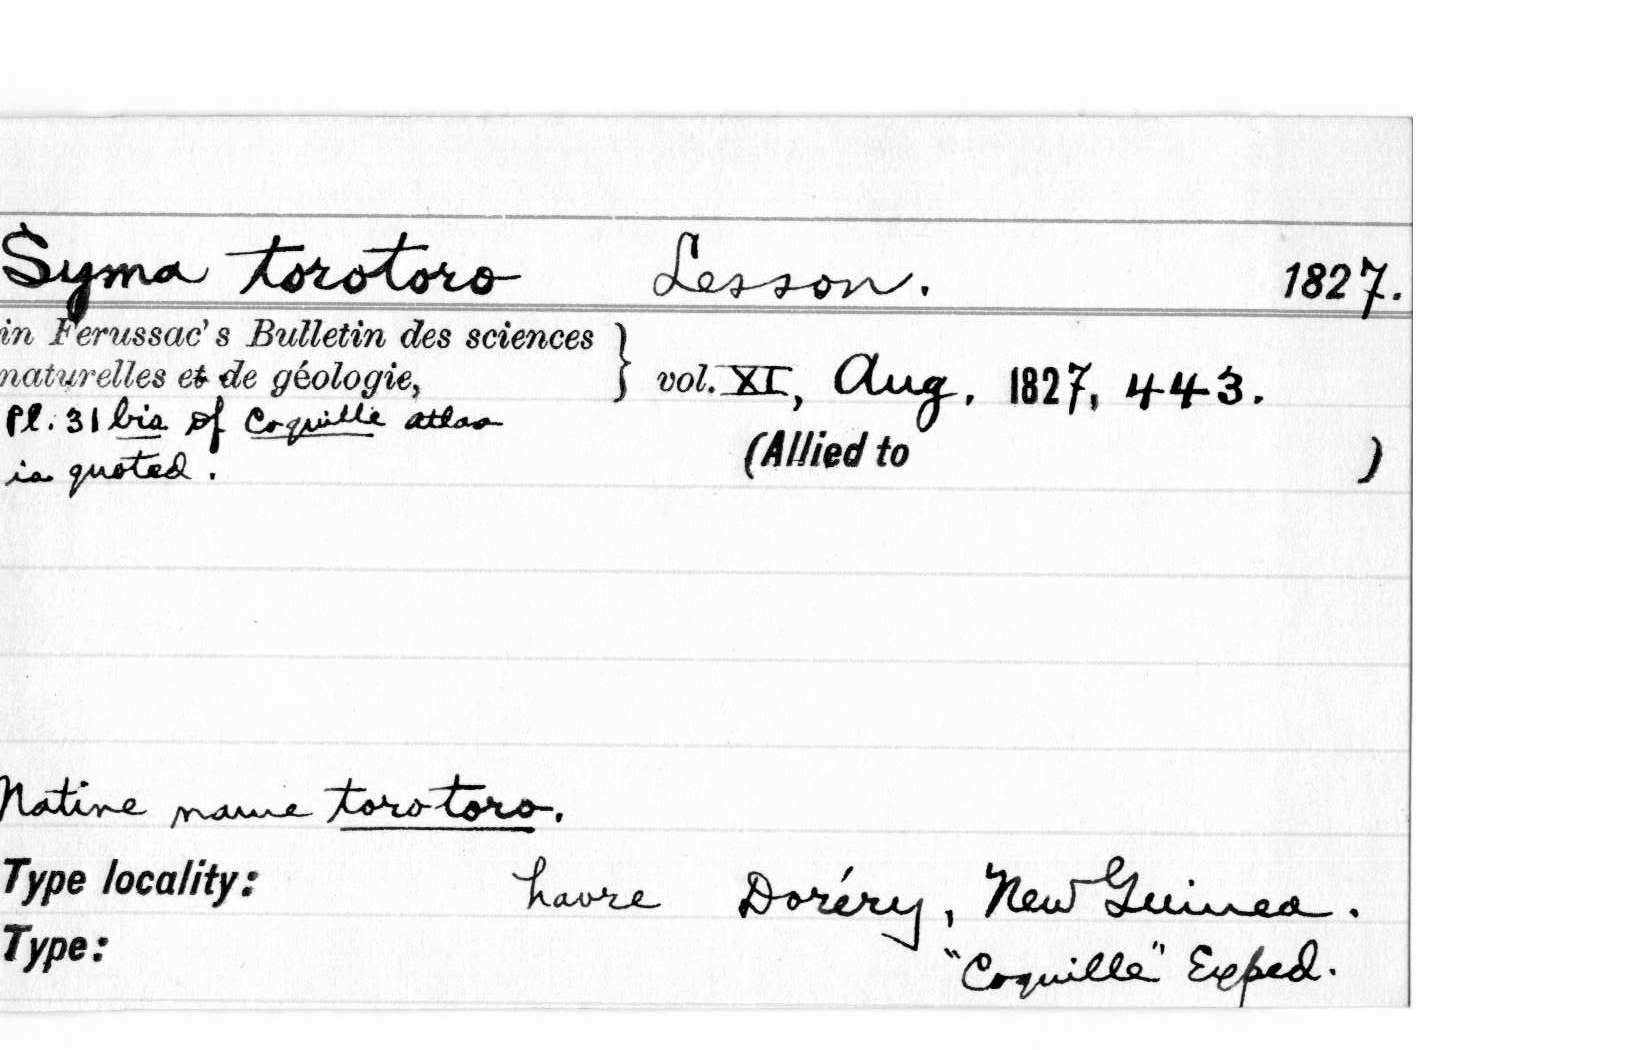 Syma torotoro Lesson. 1827.
in Ferussac's Bulletin des sciences
naturelles et de géologie, } vol. XI, Aug. 1827, 443.
Pl. 31 bis of Coquille atlas
(Allied to )
is quoted.
Native name torotoro.
Type locality: havre Doréry, New Guinea.
Type:
"Coquille" Exped.